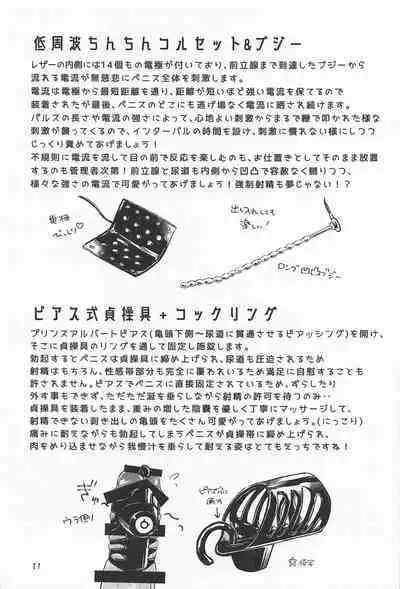 低周波ちんちんコルセット&ブジー
レザーの内側には14個もの電極が付いており、前立腺まで到達したブジーから
流れる電流が無慈悲にペニス全体を刺激します。
電流は電極から最短距離を通り、距離が短いほど強い電流を保てるので
装着されたが最後、ペニスのどこにも逃げ場なく電流に晒され続けます。
パルスの長さや電流の強さによって、心地よい刺激からまるで鞭で叩かれた様な
刺激が襲ってくるので、インターバルの時間を設け、刺激に慣れない様にしつつ
じっくり責めてあげましょう!
不規則に電流を流して目の前で反応を楽しむのも、お仕置きとしてそのまま放置
するのも管理者次第!前立腺と尿道も内側から凹凸で容赦なく嬲りつつ、
様々な強さの電流で可愛がってあげましょう!強制射精も夢じゃない!?
電極
びっしり♡
出し入れしても
楽しい!
ロング凹凸ブジー
ピアス式貞操具+コックリング
プリンスアルバートピアス(亀頭下側〜尿道に貫通させるピアッシング)を開け、
そこに貞操具のリングを通して固定し施錠します。
勃起するとペニスは貞操具に締め上げられ、尿道も圧迫されるため
射精はもちろん、性感帯部分も完全に覆われているため満足に自慰することも
許されません。ピアスでペニスに直接固定されているため、ずらしたり
外す事もできず、ただただ涎を垂らしながら射精の許可を待つのみ…
貞操具を装着したまま、重みの増した陰嚢を優しく丁寧にマッサージして、
射精できない剥き出しの亀頭をたくさん可愛がってあげましょう。(にっこり)
痛みに耐えながらも勃起してしまうペニスが貞操帯に締め上げられ、
肉をめり込ませながら我慢汁を垂らして耐える姿はとてもえっちですね!
ウラ側
ピアス穴に
通す
11